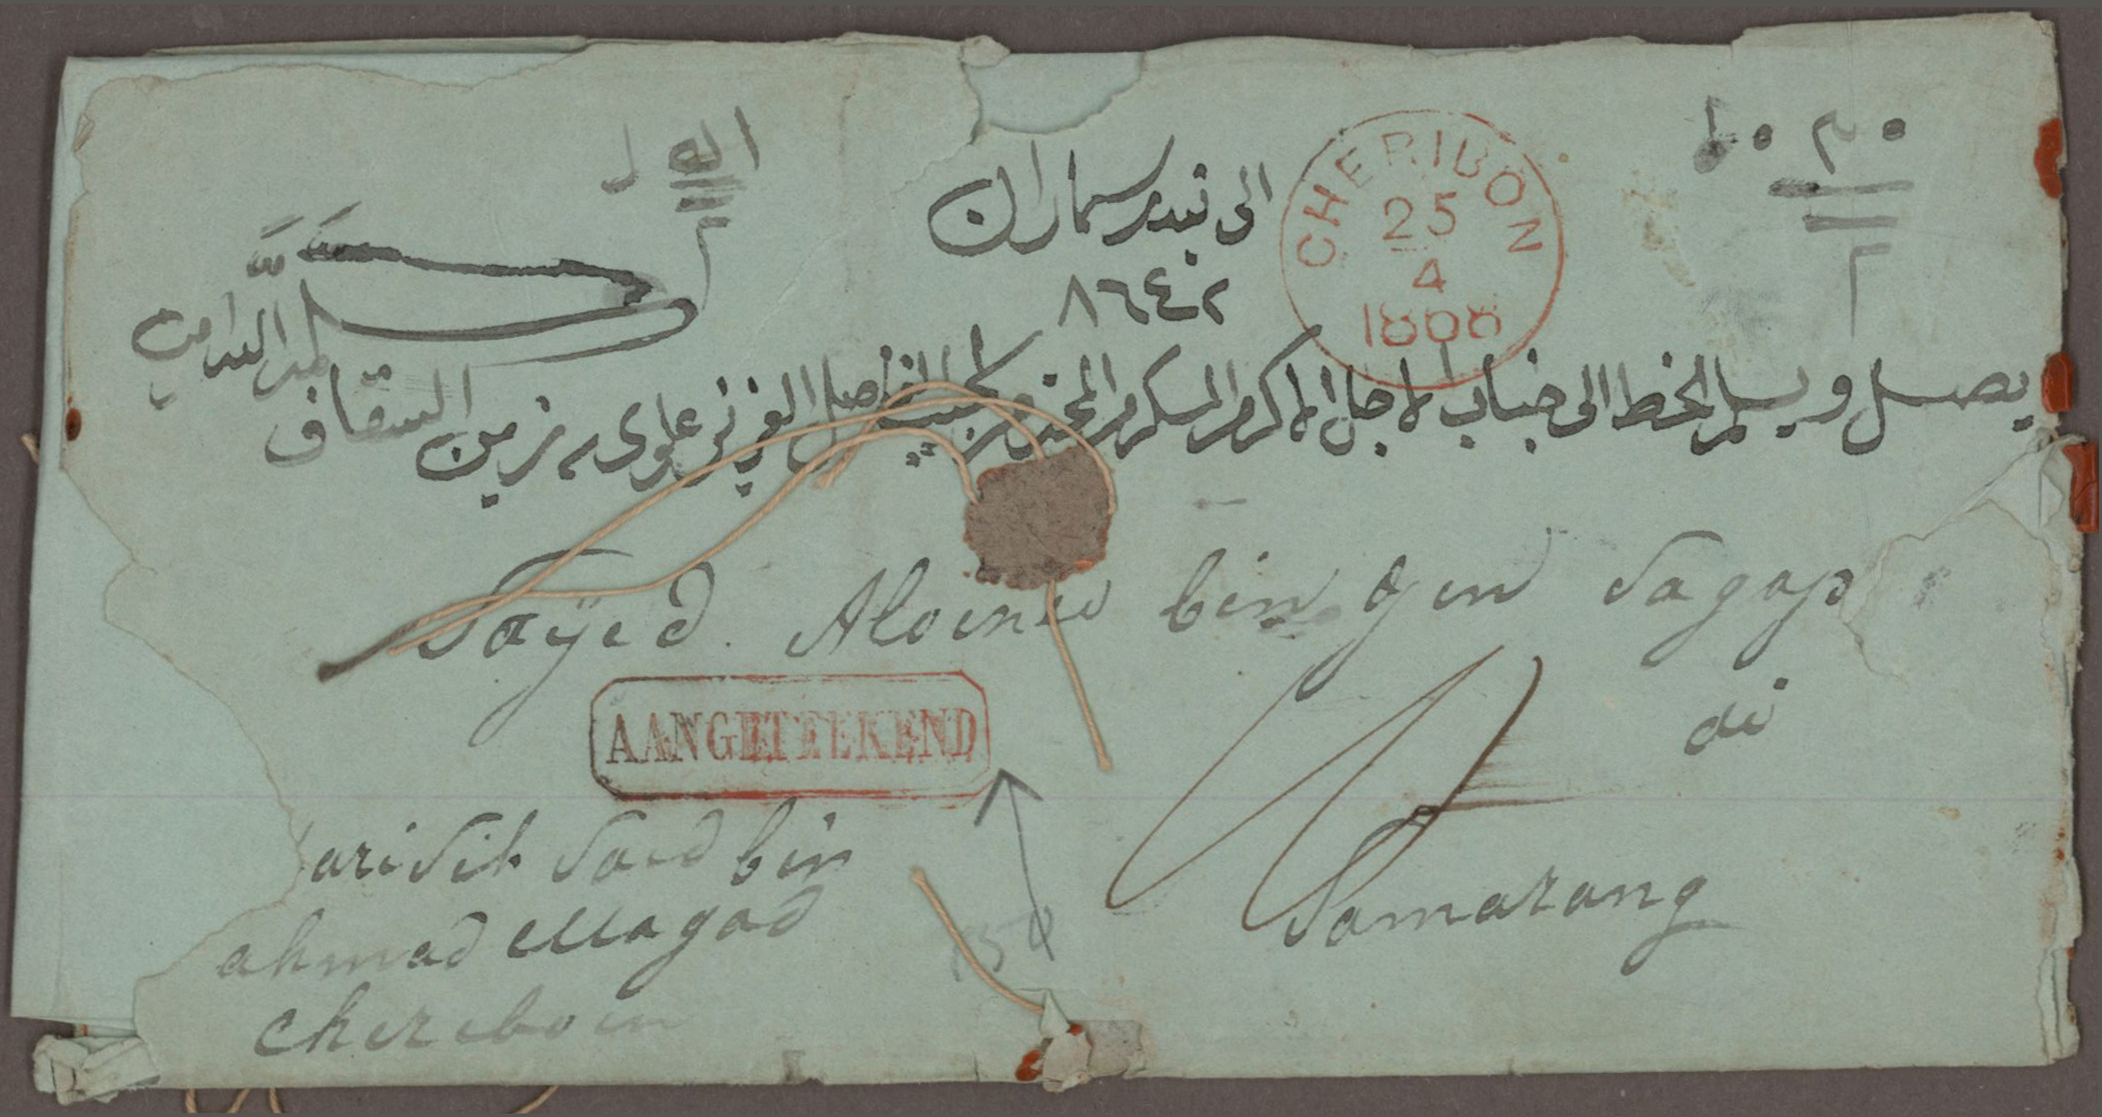 الى بندر سماران
٨٦٤٢
CHERIBON
25
4
1868
يصل ويسلم الخط الى جناب الاجل الاكرم المكرم المحترم الحبيب الفاضل العزيز علوي بن زين السقاف
Sayed Aloewie bin Zen Sagaf
di
Samarang
AANGETEEKEND
dari Sih Said bin
ahmad Magad
Cheriboin